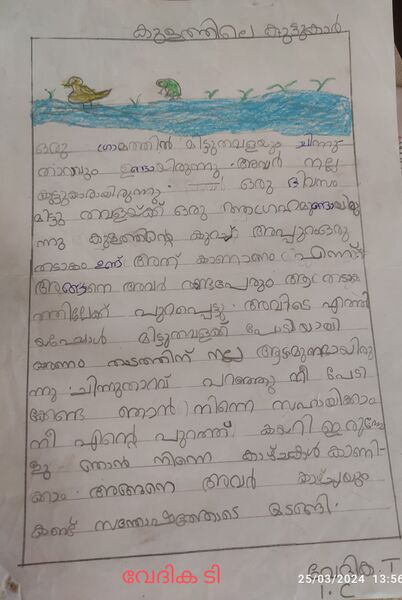 കുളത്തിലെ കൂട്ടുകാർ
ഒരു ഗ്രാമത്തിൽ മിട്ടുതവളയും ചിന്നു-
താറാവും ഉണ്ടായിരുന്നു. അവർ നല്ല
കൂട്ടുകാരായിരുന്നു. ഒരു ദിവസം
മിട്ടു തവളയ്ക്ക് ഒരു ആഗ്രഹമുണ്ടായിരു
ന്നു കുളത്തിന്റെ കുറച്ച് അപ്പുറംഒരു
തടാകം ഉണ്ട് അത് കാണാണം എന്ന്.
അങ്ങനെ അവർ രണ്ടുപേരും ആ തടാക
ത്തിലേക്ക് പുറപ്പെട്ടു. അവിടെ എത്തി
യപ്പോൾ മിട്ടുതവളക്ക് പേടിയായി
കാരണം തടത്തിന് നല്ല ആഴമുണ്ടായിരു
ന്നു ചിന്നുതാറാവ് പറഞ്ഞു നീ പേടി
ക്കേണ്ട ഞാൻ നിന്നെ സഹായിക്കാം
നീ എന്റെ പുറത്ത് കയറി ഇരുന്നോ
ളു ഞാൻ നിന്നെ കാഴ്ചകൾ കാണി-
ക്കാം. അങ്ങനെ അവർ കാഴ്ച്ചയും
കണ്ട് സന്തോഷത്തോടെ മടങ്ങി.
വേദിക. T
1. C
വേദിക ടി
25/03/2024 13:56